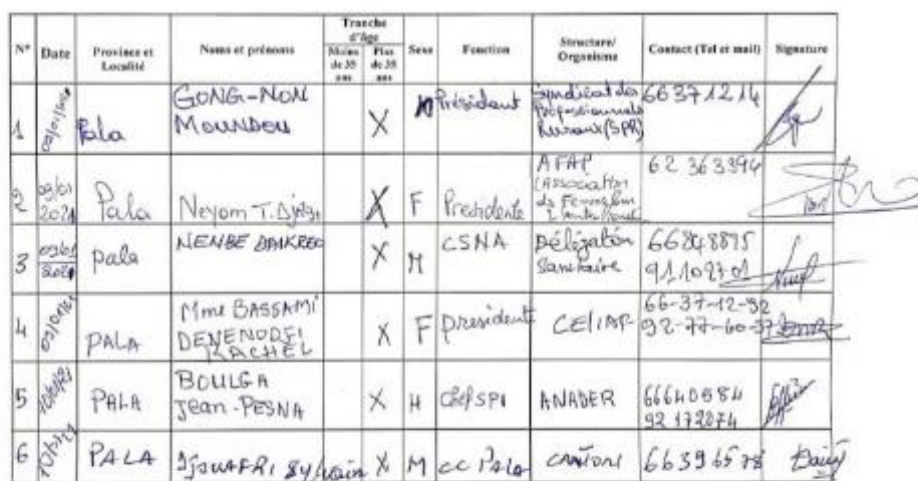 N° Date Province et Localité Noms et prénoms Tranche d'âge Moins de 35 ans Plus de 35 ans Sexe Fonction Structure/ Organisme Contact (Tel et mail) Signature
1 Pala GONG-NON MOUNDOU X Président Syndicat des Professionnels Ruraux (SPR) 66371214
2 09/01 2021 Pala Neyom T. X F Présidente AFAP (Association de 62 363394
3 Pala NENBE X M CSNA Délégation Sanitaire 66848875
4 PALA Mme BASSAMI DENENODJI RACHEL X F présidente CELIAF 66-37-12-92 92-77-60-37
5 PALA BOULGA Jean-PESNA X M Chef SPI ANADER 66640584 92172074
6 PALA X M CC Pala CANTON 66396578